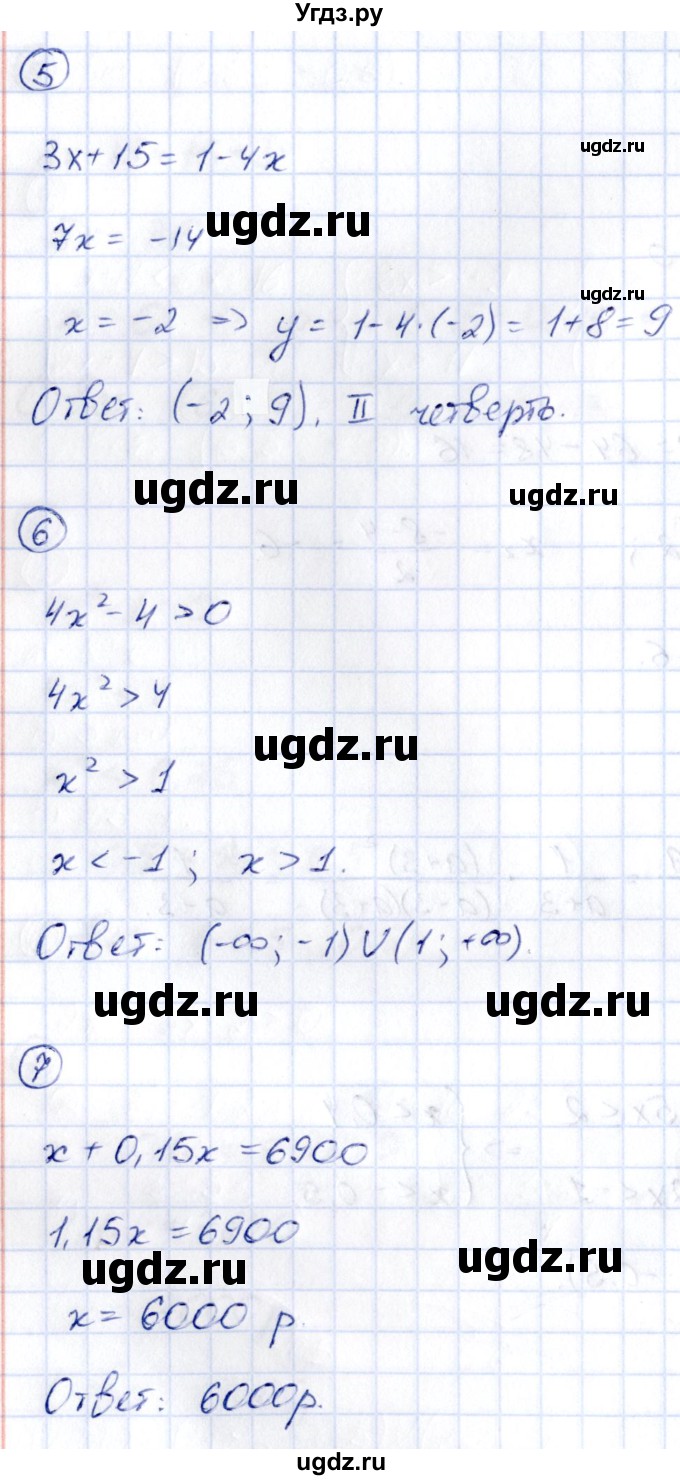 Угдз.ру
5
ugdz.ru
3x+15=1-4x
ugdz.ru
7x = -14
ugdz.ru
x = -2 => y = 1-4·(-2) = 1+8 = 9
Ответ: (-2; 9), II четверть.
ugdz.ru ugdz.ru
6
4x²-4>0
4x²>4
ugdz.ru
x²>1
x<-1; x>1.
Ответ: (-∞; -1)∪(1; +∞).
ugdz.ru ugdz.ru
7
x+0,15x=6900
1,15x=6900
ugdz.ru ugdz.ru
x=6000 р.
Ответ: 6000р.
ugdz.ru